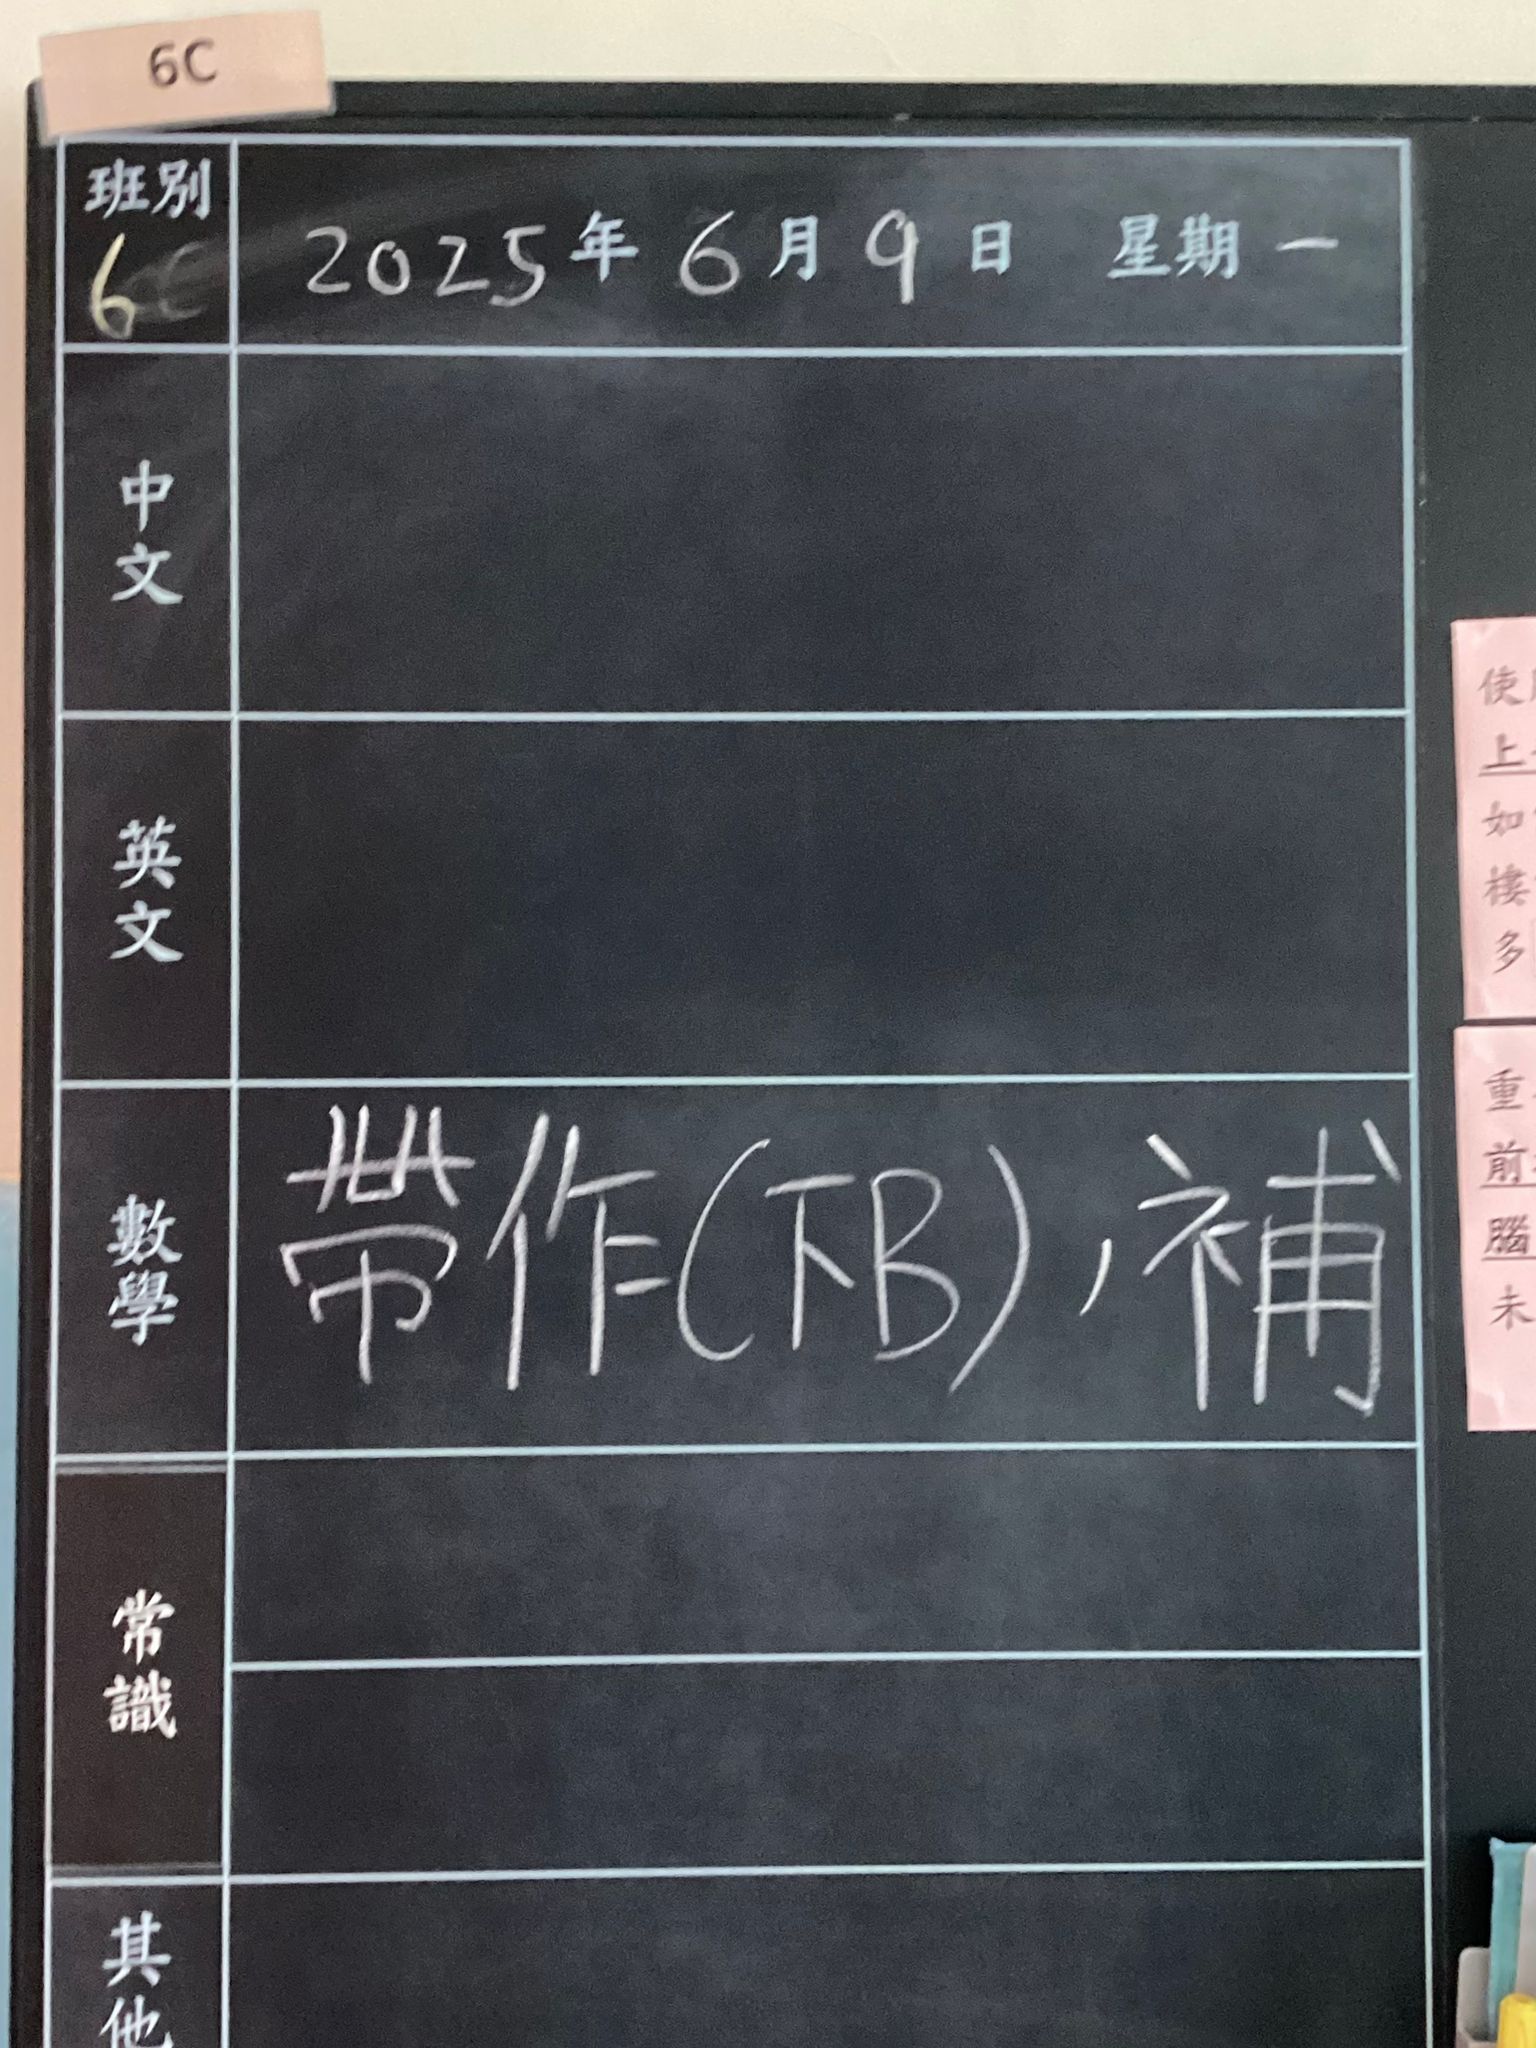 6C
班別
6C
2025年6月9日 星期一
中文
英文
數學
帶作(下B),補
常識
其他
使
上
如
樓
多
重
前
腦
未